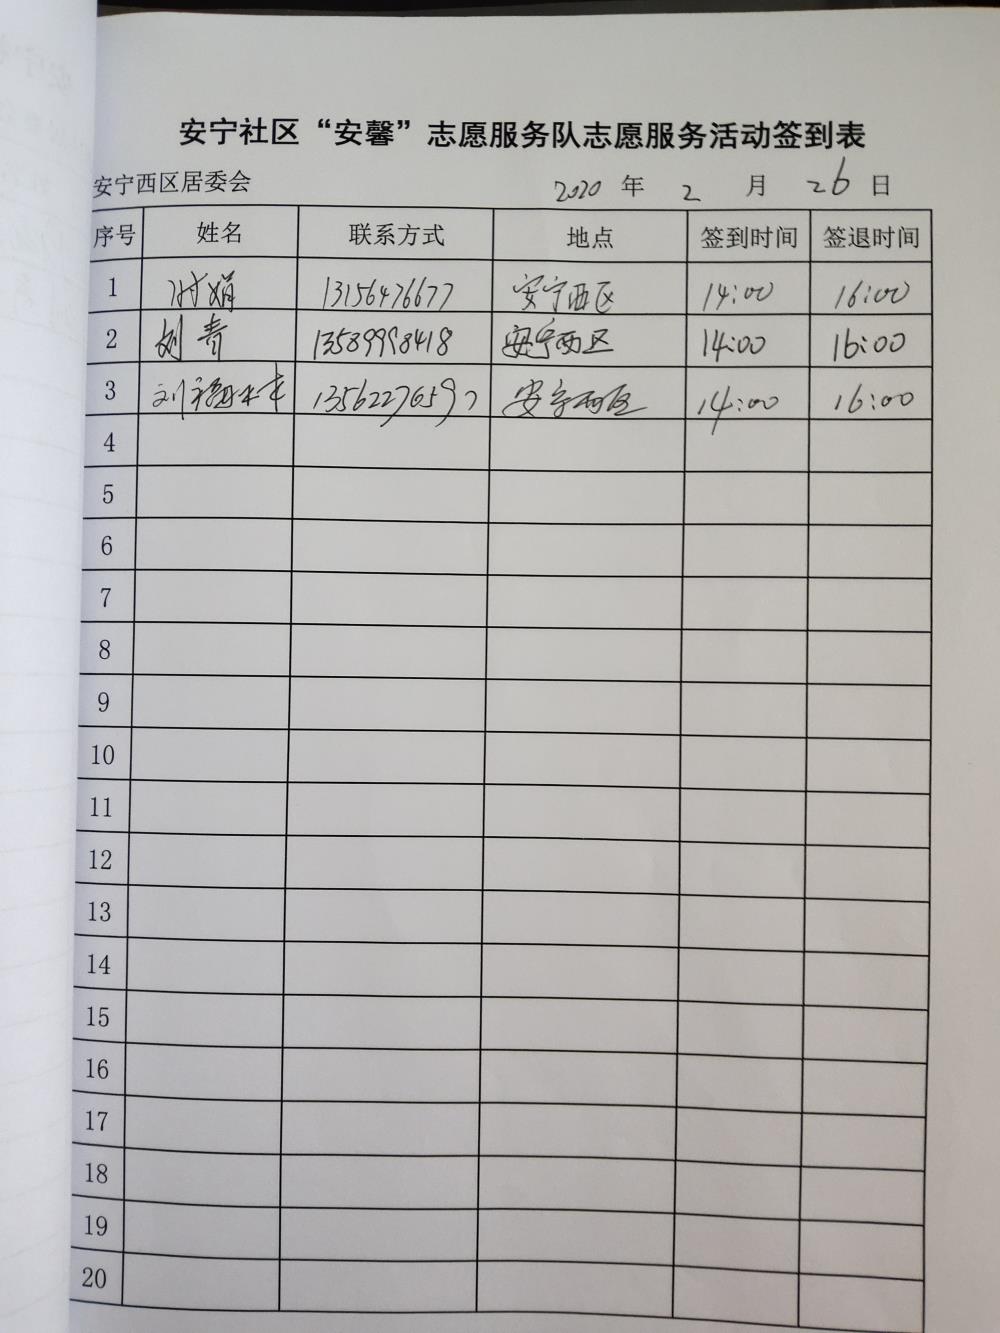 安宁社区“安馨”志愿服务队志愿服务活动签到表
安宁西区居委会 2020 年 2 月 26 日
序号 姓名 联系方式 地点 签到时间 签退时间
1 娟 13156476677 安宁西区 14:00 16:00
2 刘青 13589998418 安宁西区 14:00 16:00
3 刘 13562276597 安宁西区 14:00 16:00
4
5
6
7
8
9
10
11
12
13
14
15
16
17
18
19
20